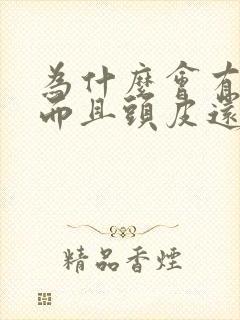 為什麼會有
而且頭皮還
精品香煙